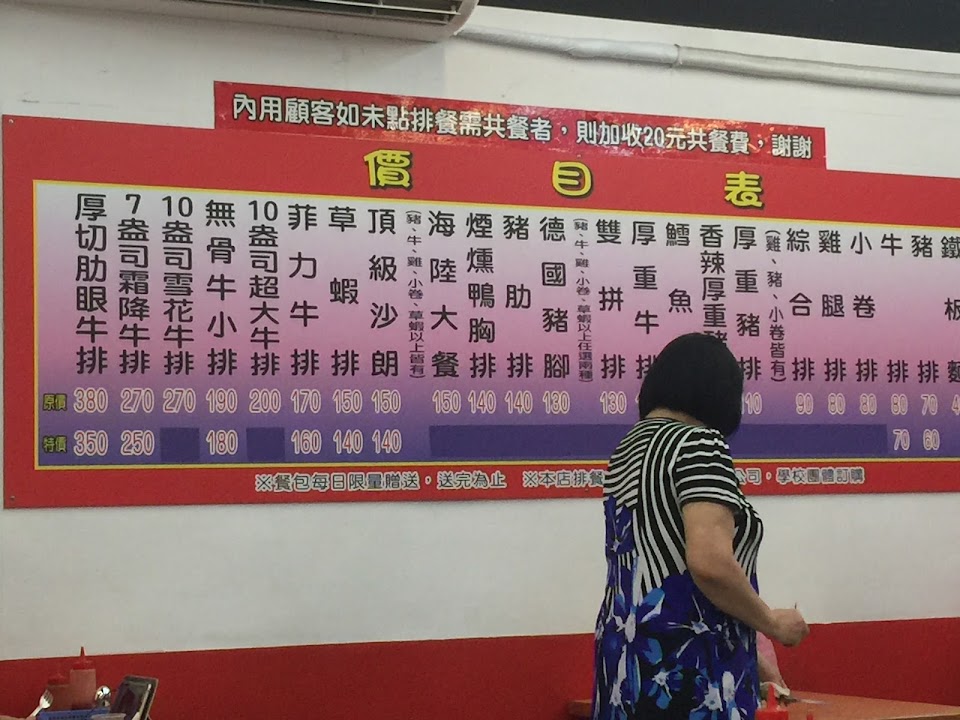 內用顧客如未點排餐需共餐者，則加收20元共餐費，謝謝
價目表
厚切肋眼牛排
7盎司霜降牛排
10盎司雪花牛排
無骨牛小排
10盎司超大牛排
菲力牛排
草蝦排
頂級沙朗
(豬、牛、雞、小卷、草蝦以上皆有)
海陸大餐
煙燻鴨胸排
豬肋排
德國豬腳
(豬、牛、雞、小卷、草蝦以上任選兩種)
雙拼排
厚重牛排
鱈魚
香辣厚重豬
厚重豬排
(雞、豬、小卷皆有)
綜合排
雞腿排
小卷排
牛排
豬排
鐵板麵
原價 380 270 270 190 200 170 150 150 150 140 140 130 130 110 90 80 80 80 70
特價 350 250 180 160 140 140 70 60
※餐包每日限量贈送，送完為止 ※本店排餐
公司，學校團體訂購